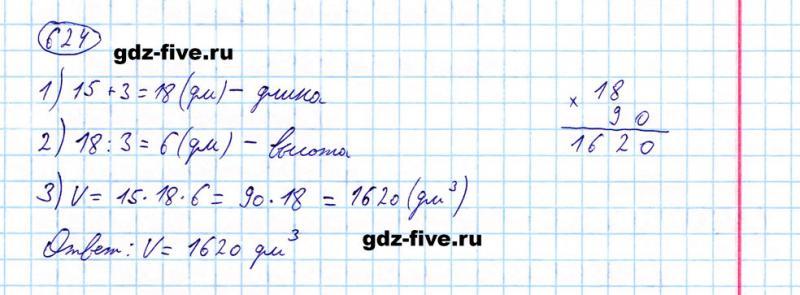 624
gdz-five.ru
1) 15 + 3 = 18 (дм) - длина
2) 18 : 3 = 6 (дм) - высота
3) V = 15 · 18 · 6 = 90 · 18 = 1620 (дм³)
Ответ: V = 1620 дм³
gdz-five.ru
× 18
90
1620